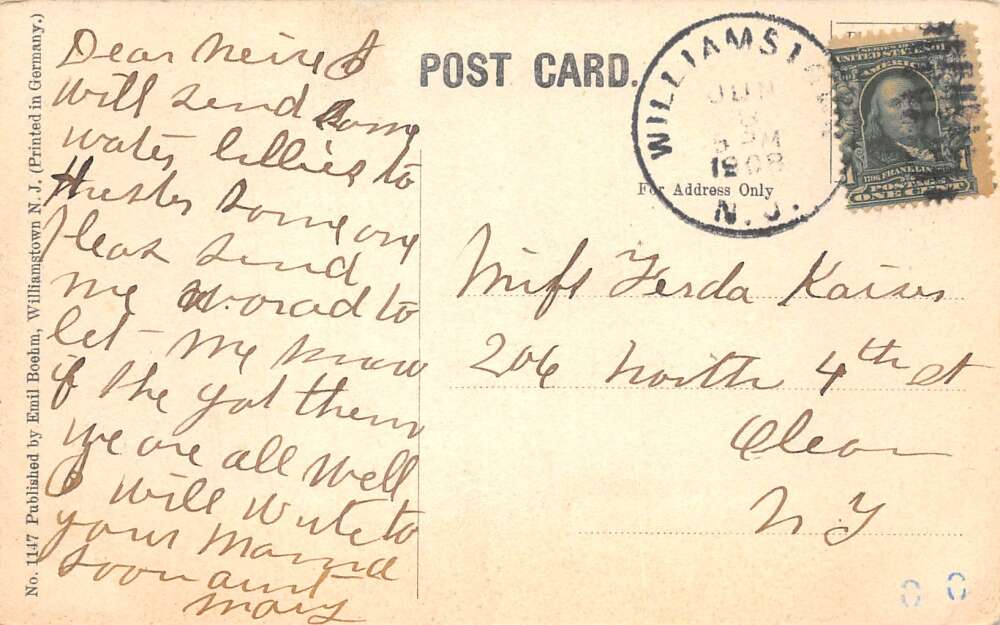 No. 1147 Published by Emil Boehm, Williamstown N. J. (Printed in Germany.)
Dear Neice I
will send some
water lillies to
Huester some one
pleas send
me a worad to
let me know
if the got them
we are all well
I will write to
your Mamma
soon aunt
Mary
POST CARD.
For Address Only
WILLIAMSTOWN
JUN
5 PM
1908
N. J.
SERIES 1902
UNITED STATES OF
AMERICA
1706 FRANKLIN 1790
POSTAGE
ONE CENT
Miss Ferda Kaiser
206 North 4th st
Olean
N Y